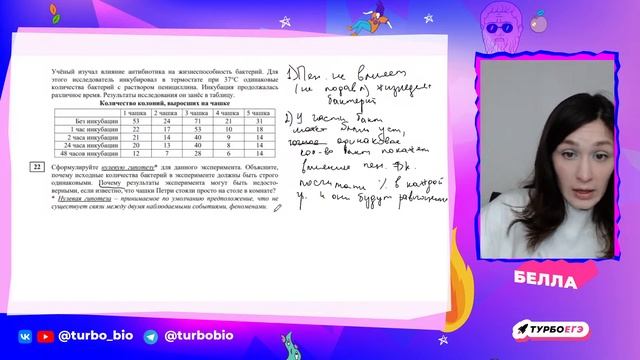 Учёный изучал влияние антибиотика на жизнеспособность бактерий. Для
этого исследователь инкубировал в термостате при 37°С одинаковые
количества бактерий с раствором пенициллина. Инкубация продолжалась
различное время. Результаты исследования он занёс в таблицу.
Количество колоний, выросших на чашке
1 чашка 2 чашка 3 чашка 4 чашка 5 чашка
Без инкубации 53 24 71 21 31
1 час инкубации 22 17 53 10 18
2 часа инкубации 21 14 40 9 14
24 часа инкубации 20 13 40 8 14
48 часов инкубации 12 7 28 6 14
22 Сформулируйте нулевую гипотезу* для данного эксперимента. Объясните,
почему исходные количества бактерий в эксперименте должны быть строго
одинаковыми. Почему результаты эксперимента могут быть недосто-
верными, если известно, что чашки Петри стояли просто на столе в комнате?
* Нулевая гипотеза – принимаемое по умолчанию предположение, что не
существует связи между двумя наблюдаемыми событиями, феноменами.
1) Пен. не влияет
(не подавл) жизнедеят
бактерий
2) У части бакт
может быть уст,
одинаковое
кол-во бакт покажет
влияние пен.
посчитать % в каждой
и они будут
БЕЛЛА
ТУРБОЕГЭ
@turbo_bio @turbobio